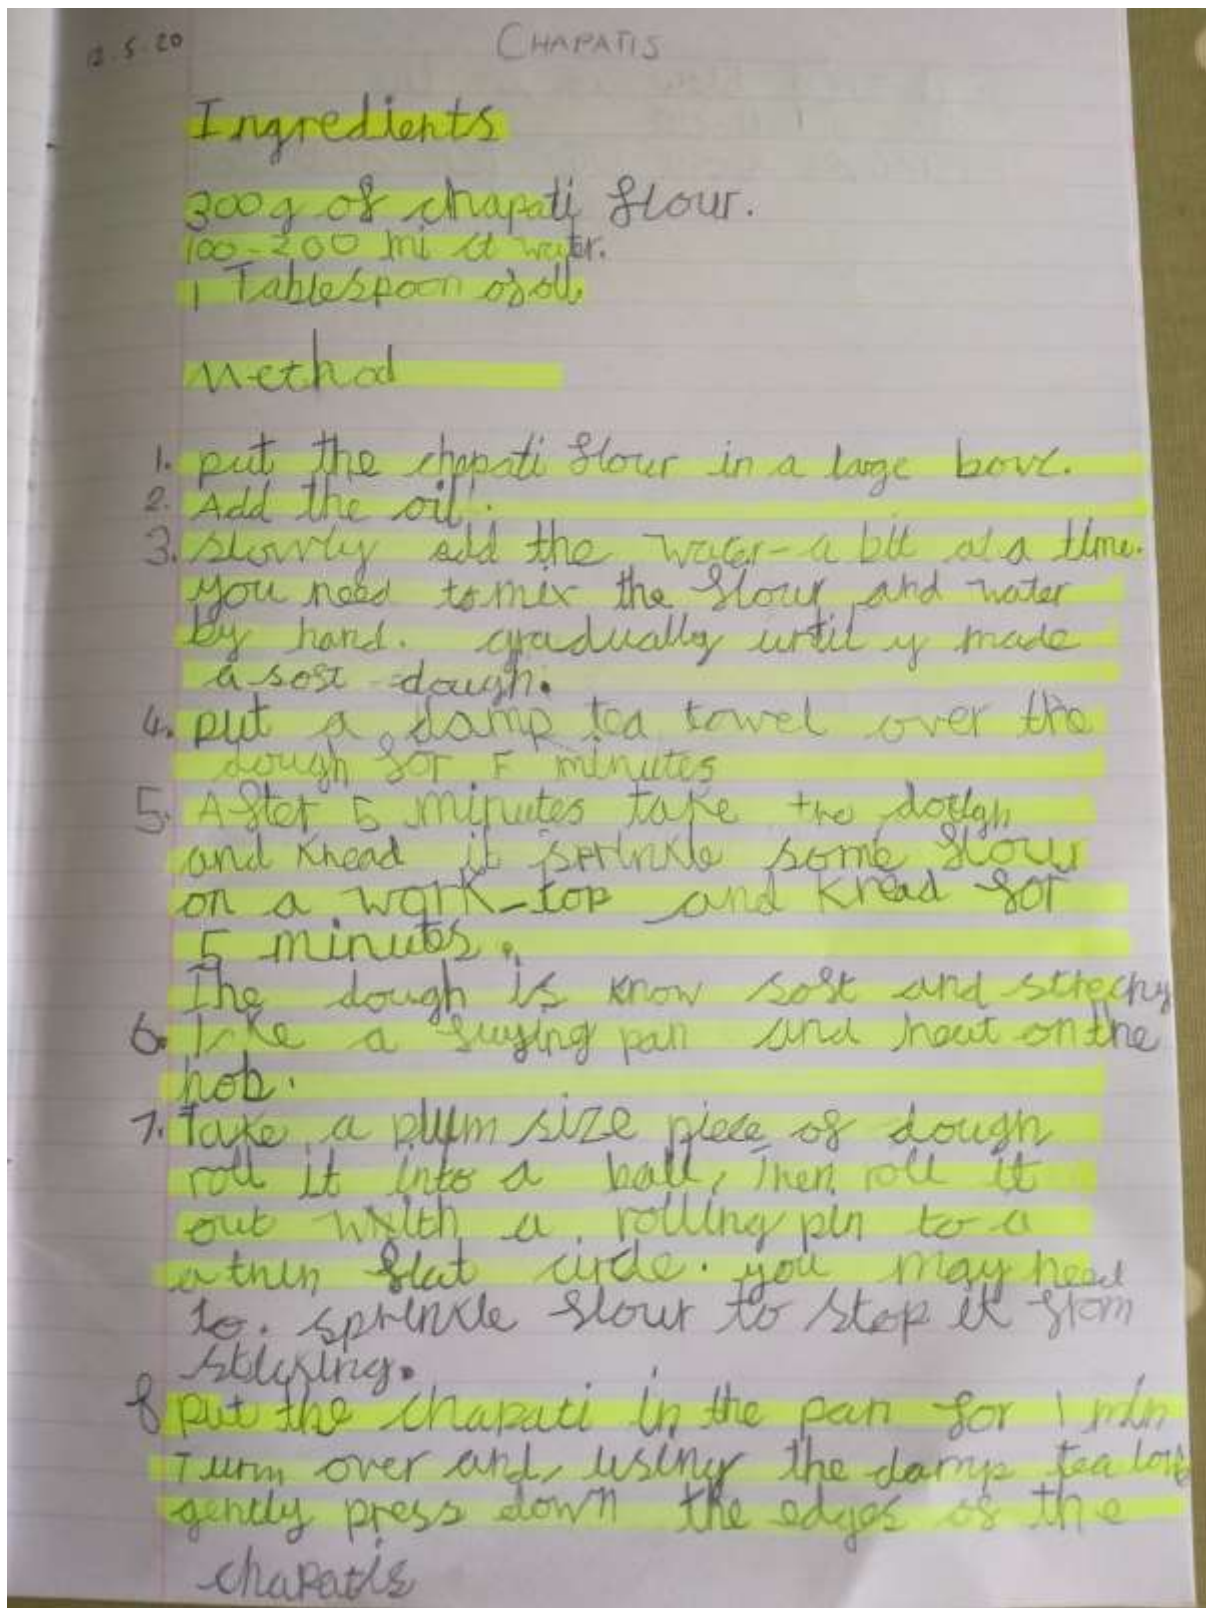 12.5.20 CHAPATIS
Ingredients
300g of chapati flour.
100-200 ml of water.
1 Tablespoon of oil
Method
1. put the chapati flour in a large bowl.
2. Add the oil.
3. slowly add the water - a bit at a time.
you need to mix the flour and water
by hand. gradually until y made
a soft dough.
4. put a damp tea towel over the
dough for 5 minutes
5. After 5 minutes take the dough
and knead it sprinkle some flour
on a work-top and knead for
5 minutes.
The dough is know soft and strechy
6. Take a frying pan and heat on the
hob.
7. Take a plum size piece of dough
roll it into a ball, Then roll it
out with a rolling pin to a
a thin flat circle. you may need
to. sprinkle flour to stop it from
sticking.
8 put the chapati in the pan for 1 min
Turn over and, using the damp tea
gently press down the edges of the
chapatis